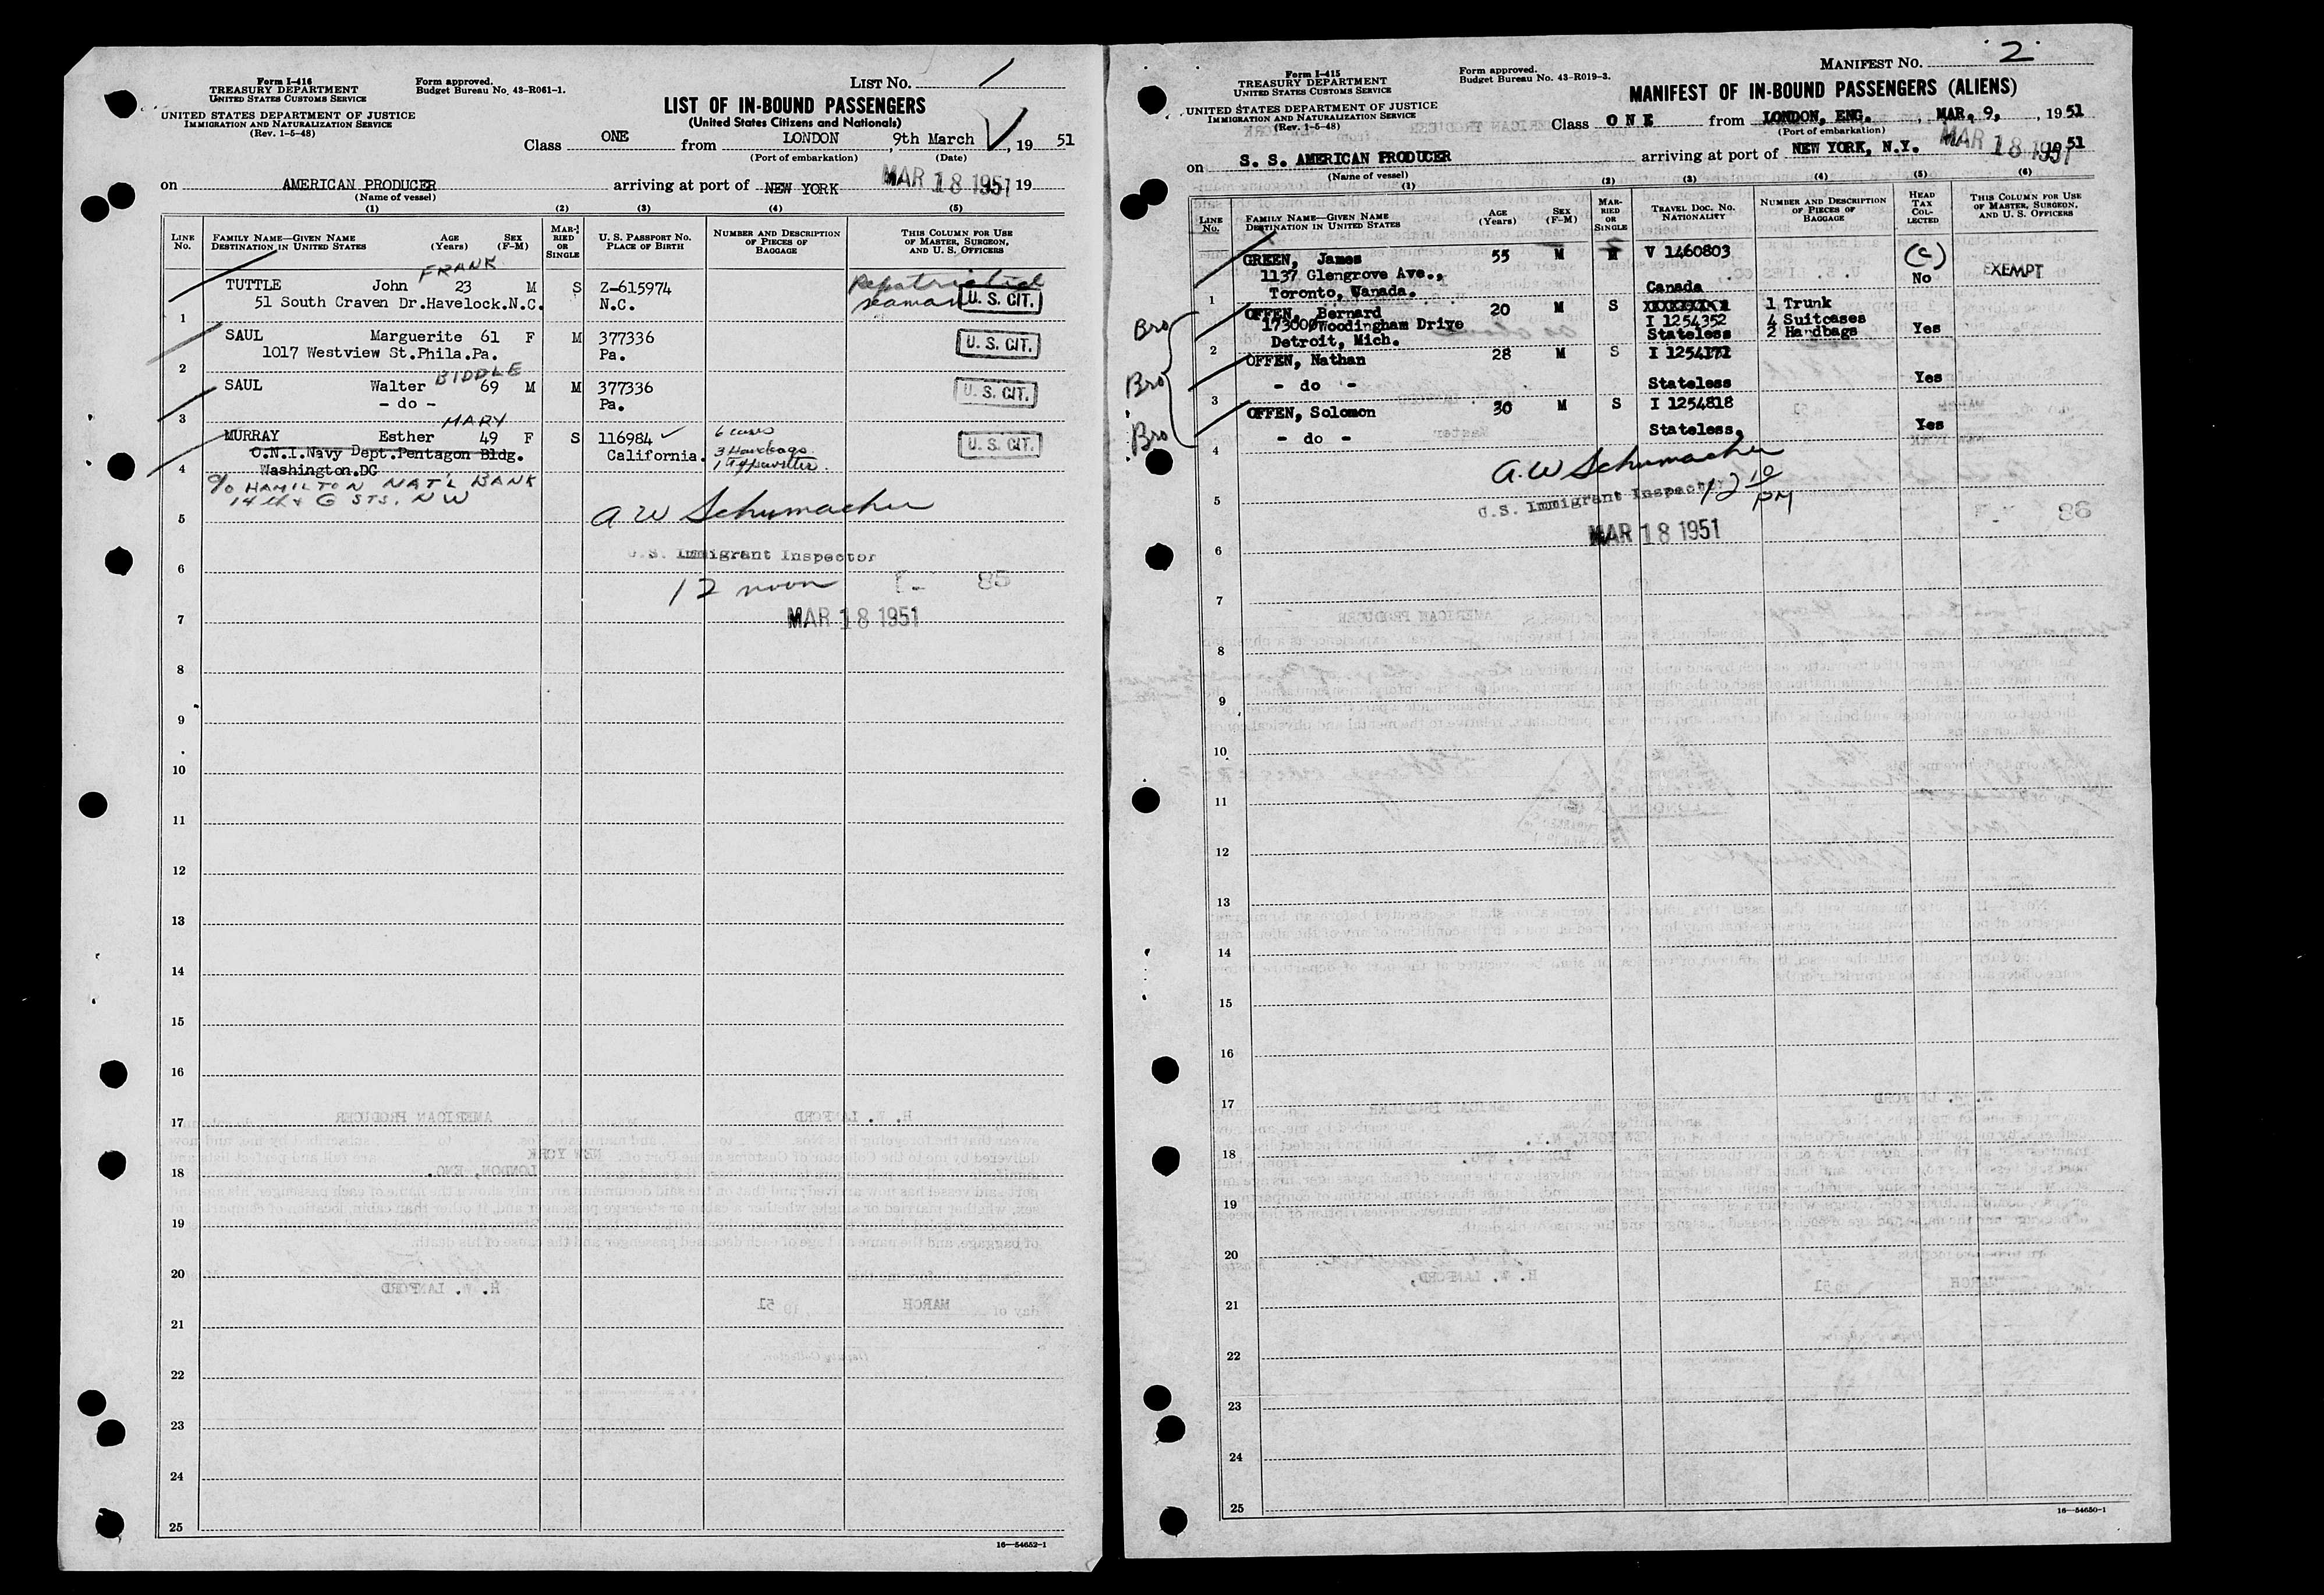 Form I-416
TREASURY DEPARTMENT
UNITED STATES CUSTOMS SERVICE
UNITED STATES DEPARTMENT OF JUSTICE
IMMIGRATION AND NATURALIZATION SERVICE
(Rev. 1-5-48)
Form approved.
Budget Bureau No. 43-R061-1.
LIST No. 1
LIST OF IN-BOUND PASSENGERS
(United States Citizens and Nationals)
Class ONE from LONDON, 9th March, 19 51
(Port of embarkation) (Date)
on AMERICAN PRODUCER arriving at port of NEW YORK MAR 18 1951 19
(Name of vessel)
(1) (2) (3) (4) (5)
LINE No.
FAMILY NAME—GIVEN NAME
DESTINATION IN UNITED STATES
AGE (Years)
SEX (F-M)
MARRIED OR SINGLE
U. S. PASSPORT No.
PLACE OF BIRTH
NUMBER AND DESCRIPTION OF PIECES OF BAGGAGE
THIS COLUMN FOR USE OF MASTER, SURGEON, AND U. S. OFFICERS
FRANK
TUTTLE John 23 M S Z-615974 Repatriated
51 South Craven Dr.Havelock.N.C. N.C. seaman U. S. CIT.
1
SAUL Marguerite 61 F M 377336 U. S. CIT.
1017 Westview St.Phila.Pa. Pa.
2
BIDDLE
SAUL Walter 69 M M 377336 U. S. CIT.
- do - Pa.
3
MARY
MURRAY Esther 49 F S 116984 ✓ 6 cases U. S. CIT.
O.N.I.Navy Dept.Pentagon Bldg. California. 3 Handbags
Washington.DC 1 Typewriter.
4
c/o HAMILTON NAT'L BANK
14th & G STS. NW
A W Schumacher
5
U.S. Immigrant Inspector
6
12 noon
MAR 18 1951
7
8
9
10
11
12
13
14
15
16
17
18
19
20
21
22
23
24
25
16—54652-1
Form I-415
TREASURY DEPARTMENT
UNITED STATES CUSTOMS SERVICE
UNITED STATES DEPARTMENT OF JUSTICE
IMMIGRATION AND NATURALIZATION SERVICE
(Rev. 1-5-48)
Form approved.
Budget Bureau No. 43-R019-3.
MANIFEST No. 2
MANIFEST OF IN-BOUND PASSENGERS (ALIENS)
Class ONE from LONDON, ENG., MAR. 9, , 19 51
(Port of embarkation)
on S. S. AMERICAN PRODUCER arriving at port of NEW YORK, N.Y. MAR 18 1951 51
(Name of vessel)
(1) (2) (3) (4) (5) (6)
LINE No.
FAMILY NAME—GIVEN NAME
DESTINATION IN UNITED STATES
AGE (Years)
SEX (F-M)
MARRIED OR SINGLE
TRAVEL DOC. NO.
NATIONALITY
NUMBER AND DESCRIPTION OF PIECES OF BAGGAGE
HEAD TAX COLLECTED
THIS COLUMN FOR USE OF MASTER, SURGEON, AND U. S. OFFICERS
GREEN, James 55 M M V 1460803 (C)
1137 Glengrove Ave., No EXEMPT
Toronto, Canada. Canada
1
Bro
OFFEN, Bernard 20 M S 1 Trunk
17300 Woodingham Drive I 1254352 4 Suitcases
Detroit, Mich. Stateless 2 Handbags Yes
2
Bro
OFFEN, Nathan 28 M S I 1254171
- do - Stateless Yes
3
Bro
OFFEN, Solomon 30 M S I 1254818
- do - Stateless, Yes
4
A.W Schumacher
U.S. Immigrant Inspector 12 10 PM
5
MAR 18 1951
6
7
8
9
10
11
12
13
14
15
16
17
18
19
20
21
22
23
24
25
16—54650-1